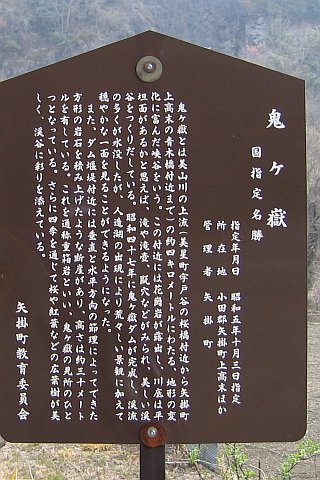 鬼ヶ嶽
国指定名勝
指定年月日　昭和五年十月三日指定
所在地　小田郡矢掛町上高末ほか
管理者　矢掛町
鬼ヶ嶽とは美山川の上流、美星町宇戸谷の桜橋付近から矢掛町
上高末の青木橋付近まで、約四キロメートルにわたる、地形の変
化に富んだ峡谷をいう。この付近には花崗岩が露出し、川底は平
坦面があるかと思えば、滝や滝壺、甌穴などがみられ、美しい渓
谷をつくりだしている。昭和四十七年に鬼ヶ嶽ダムが完成し、渓流
の多くが水没したが、人造湖の出現により荒々しい景観に加えて
穏やかな一面を見ることができるようになった。
また、ダム堰堤付近には垂直と水平方向の節理によってできた
方形の岩石を積み上げたような断崖があり、高さは約三十メート
ルを有している。これを通称重箱岩といい、鬼ヶ嶽の見所のひと
つとなっている。さらに四季を通じて桜や紅葉などの広葉樹が美
しく、渓谷に彩りを添えている。
矢掛町教育委員会